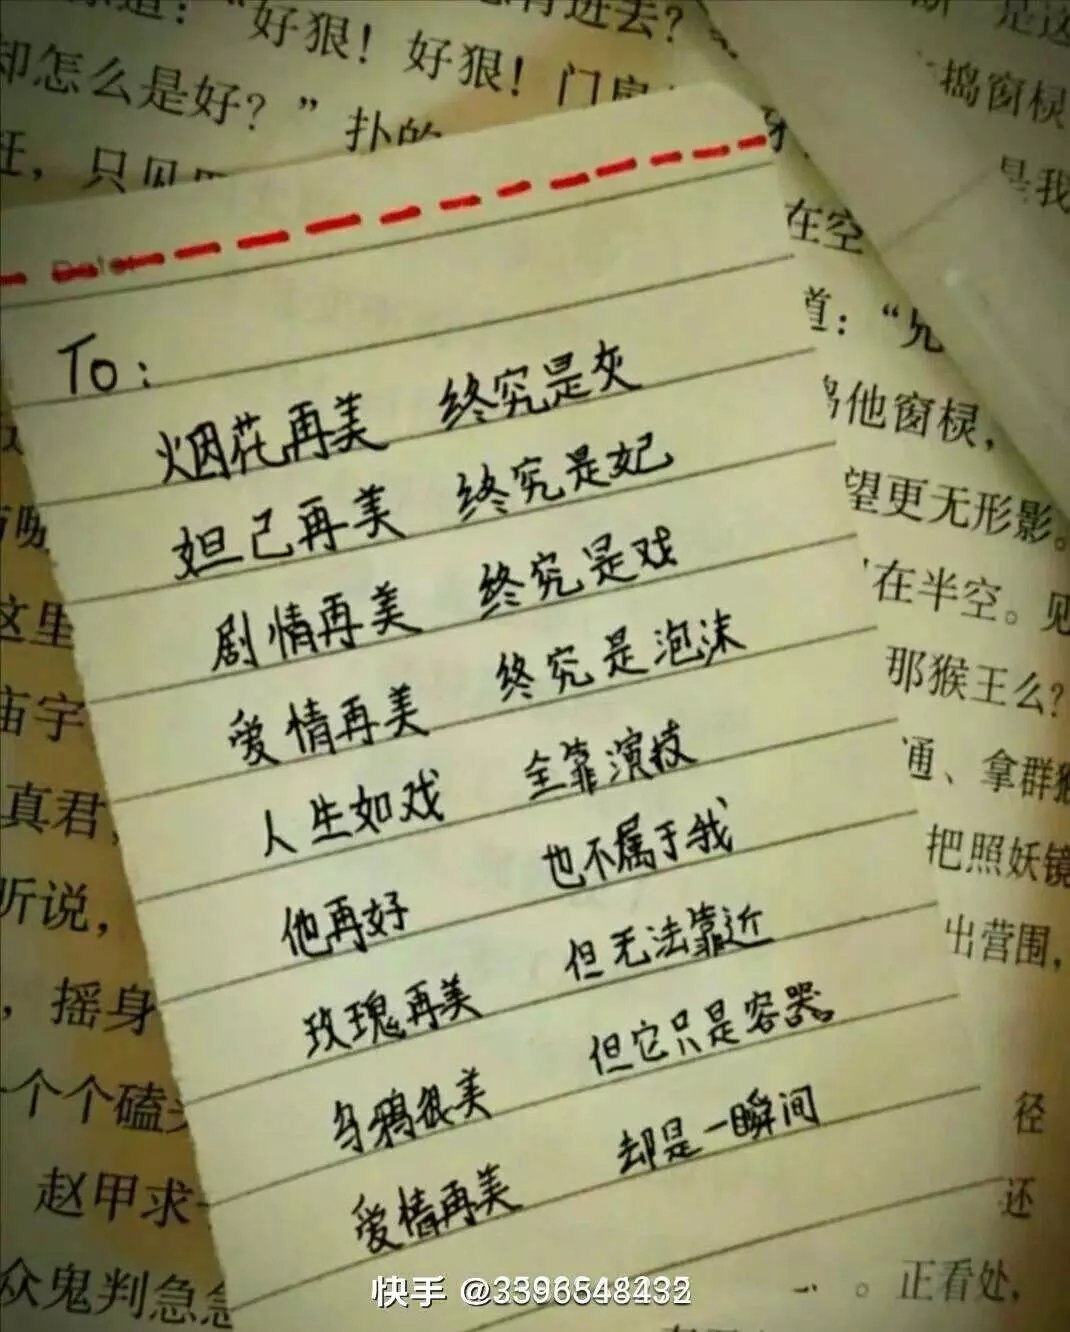 道：“好狠！好狠！门扇
却怎么是好？”扑的
To：
烟花再美 终究是灰
妲己再美 终究是妃
剧情再美 终究是戏
爱情再美 终究是泡沫
人生如戏 全靠演技
他再好 也不属于我
玫瑰再美 但无法靠近
乌鸦很美 但它只是容器
爱情再美 却是一瞬间
捣窗棂
是我
在空
道：“兄
他窗棂，
望更无形影。
在半空。见
那猴王么？
通、拿群猴
把照妖镜
出营围，
径
还
正看处，
这里
庙宇
真君，
听说，
，摇身
一个个磕头
赵甲求
众鬼判急急
快手 @3396548432